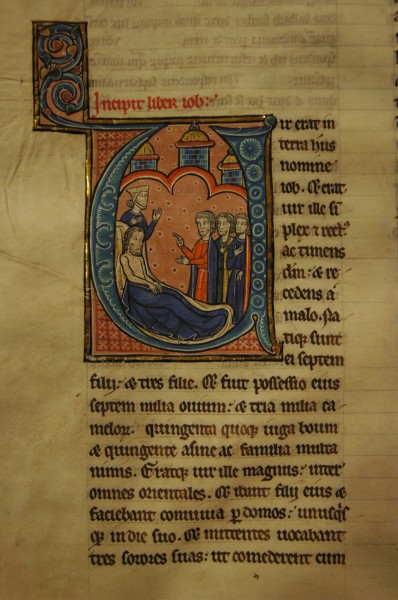 Incipit liber iob:
Vir erat in
terra hus
nomine
iob. Et erat
uir ille sī
plex & rect᷒
ac timens
dm̄: & re
cedens a
malo. Na
tiqȝ sunt
ei septem
filij: & tres filie. Et fuit possessio eius
septem milia ouium: & tria milia ca
melorum. quingenta quoqȝ iuga boum
& quingente asine ac familia multa
nimis. Eratqȝ uir ille magnus: inter
omnes orientales. Et ibant filij eius &
faciebant conuiuia ꝑ domos: unusqͥsqȝ
in die suo. Et mittentes uocabant
tres sorores suas: ut comederent cum